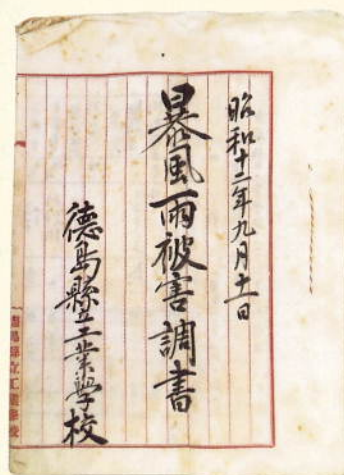 昭和十二年九月十一日
暴風雨被害調書
德島縣立工業學校
德島縣立工業學校